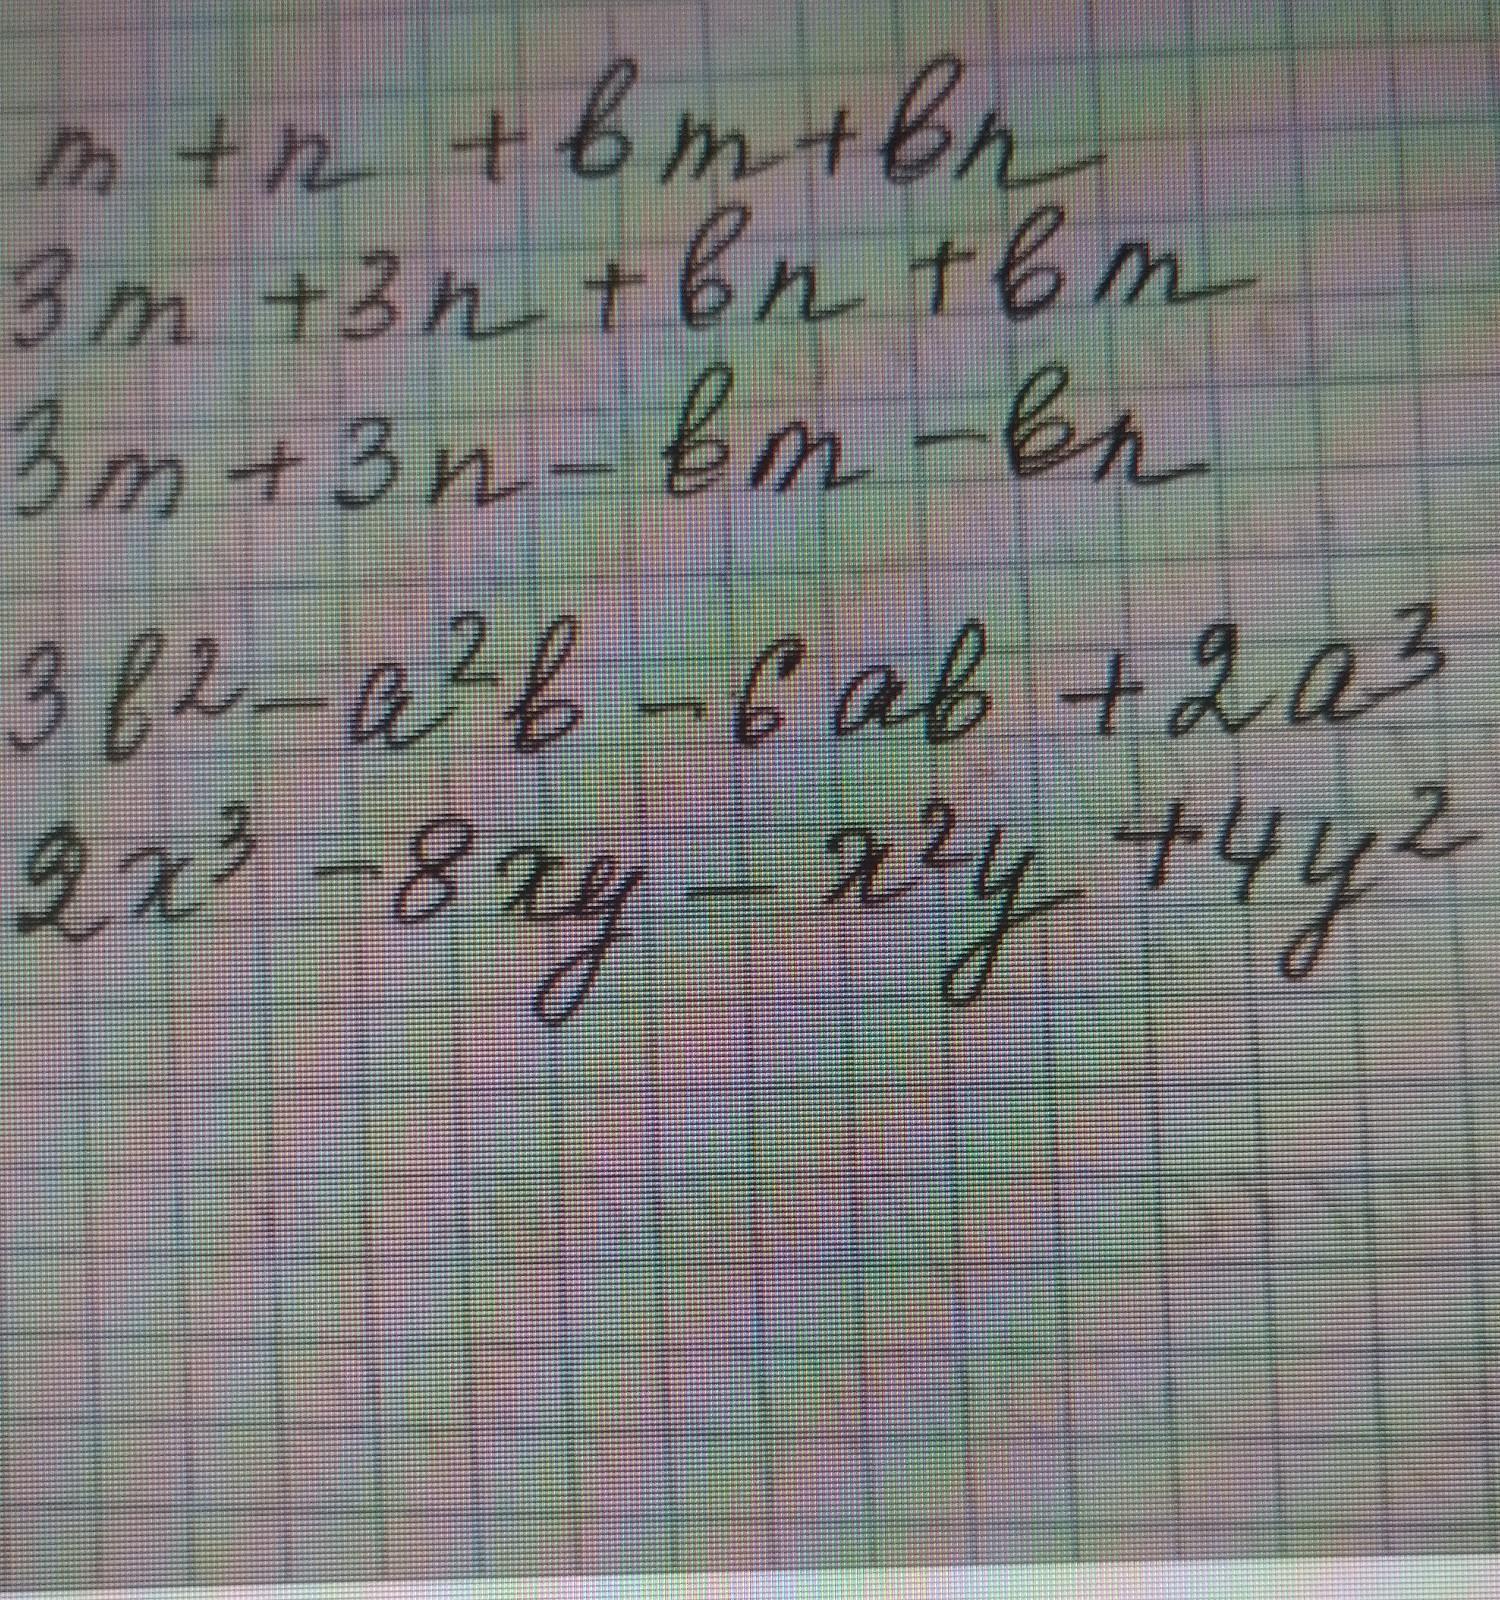 m + n + bm + bn
3m + 3n + bn + bm
3m + 3n - bm - bn
3b² - a²b - 6ab + 2a³
2x³ - 8xy - x²y + 4y²